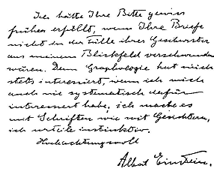 Ich hätte Ihre Bitte gewiss
früher erfüllt, wenn Ihr Brief
nicht in der Fülle ihrer Geschwister
aus meinem Blickfeld verschwunden
wäre. Die Graphologie hat mich
stets interessiert, wenn ich mich
auch nie systematisch dafür
interessiert habe, ich mache es
mit Schriften wie mit Gesichtern,
ich urteile instinktiv.
Hochachtungsvoll
Albert Einstein.